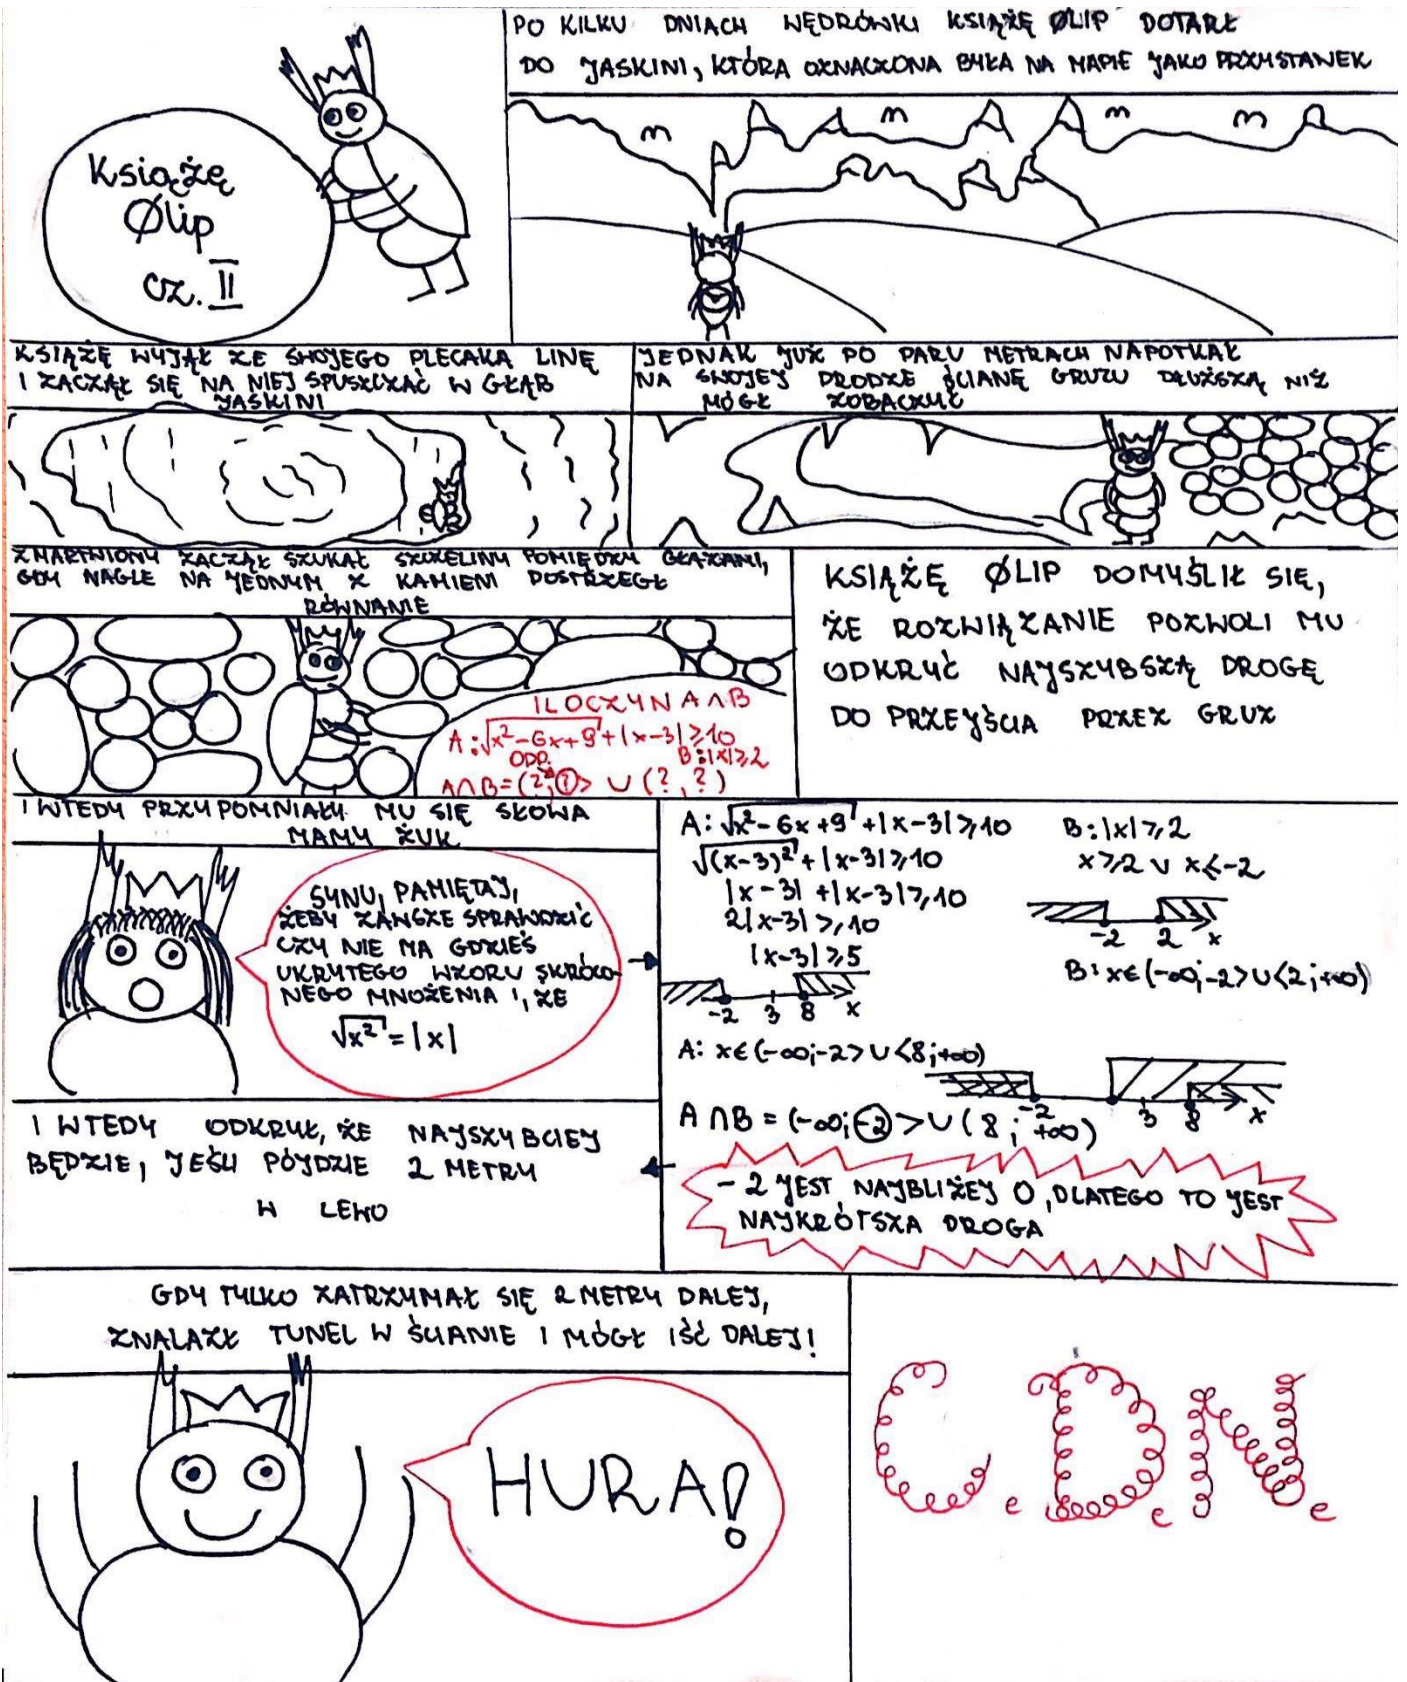 Książę
Ølip
cz. II
PO KILKU DNIACH WĘDRÓWKI KSIĄŻĘ ØLIP DOTARŁ
DO JASKINI, KTÓRA OZNACZONA BYŁA NA MAPIE JAKO PRZYSTANEK
KSIĄŻĘ WYJĄŁ ZE SWOJEGO PLECAKA LINĘ
I ZACZĄŁ SIĘ NA NIEJ SPUSZCZAĆ W GŁĄB
JASKINI
JEDNAK JUŻ PO PARU METRACH NAPOTKAŁ
NA SWOJEJ DRODZE ŚCIANĘ GRUZU DŁUŻSZĄ NIŻ
MÓGŁ ZOBACZYĆ
ZMARTWIONY ZACZĄŁ SZUKAĆ SZCZELINY POMIĘDZY GŁAZAMI,
GDY NAGLE NA JEDNYM Z KAMIENI DOSTRZEGŁ
RÓWNANIE
ILOCZYN A∩B
A: √x²-6x+9 + |x-3| ⩾ 10
ODP. B: |x| ⩾ 2
A∩B = (?; ?> ∪ (?, ?)
KSIĄŻĘ ØLIP DOMYŚLIŁ SIĘ,
ŻE ROZWIĄZANIE POZWOLI MU
ODKRYĆ NAJSZYBSZĄ DROGĘ
DO PRZEJŚCIA PRZEZ GRUZ
I WTEDY PRZYPOMNIAŁY MU SIĘ SŁOWA
MAMY ŻUK
SYNU, PAMIĘTAJ,
ŻEBY ZAWSZE SPRAWDZIĆ
CZY NIE MA GDZIEŚ
UKRYTEGO WZORU SKRÓCO-
NEGO MNOŻENIA I, ŻE
√x² = |x|
A: √x²-6x+9 + |x-3| ⩾ 10
√(x-3)² + |x-3| ⩾ 10
|x-3| + |x-3| ⩾ 10
2|x-3| ⩾ 10
|x-3| ⩾ 5
-2 3 8 x
A: x∈(-∞;-2> ∪ <8;+∞)
B: |x| ⩾ 2
x ⩾ 2 ∨ x ⩽ -2
-2 2 x
B: x∈(-∞;-2> ∪ <2;+∞)
-2 3 8 x
A∩B = (-∞; -2> ∪ (8; +∞)
-2 JEST NAJBLIŻEJ 0, DLATEGO TO JEST
NAJKRÓTSZA DROGA
I WTEDY ODKRYŁ, ŻE NAJSZYBCIEJ
BĘDZIE, JEŚLI PÓJDZIE 2 METRY
W LEWO
GDY TYLKO ZATRZYMAŁ SIĘ 2 METRY DALEJ,
ZNALAZŁ TUNEL W ŚCIANIE I MÓGŁ IŚĆ DALEJ!
HURA!
C.D.N.